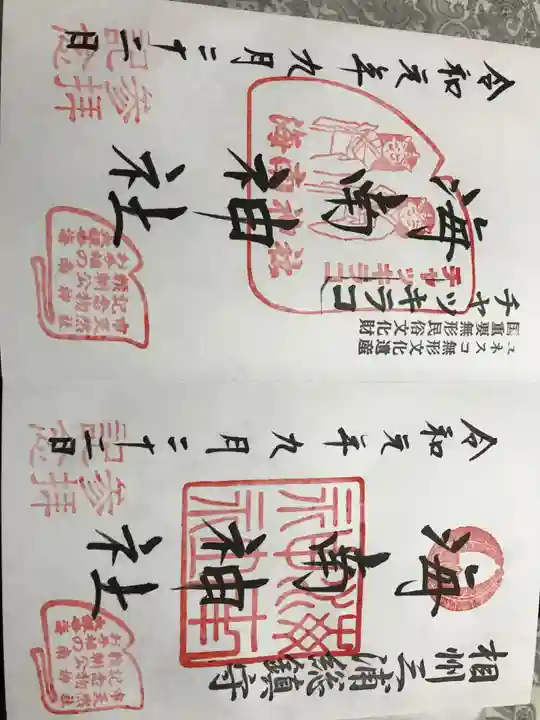 ユネスコ無形文化遺産
国重要無形民俗文化財
チャッキラコ
海南神社
チャッキラコ
海南神社
令和元年九月二十一日
参拝
記念
相州三浦総鎮守
海南神社
令和元年九月二十一日
参拝
記念